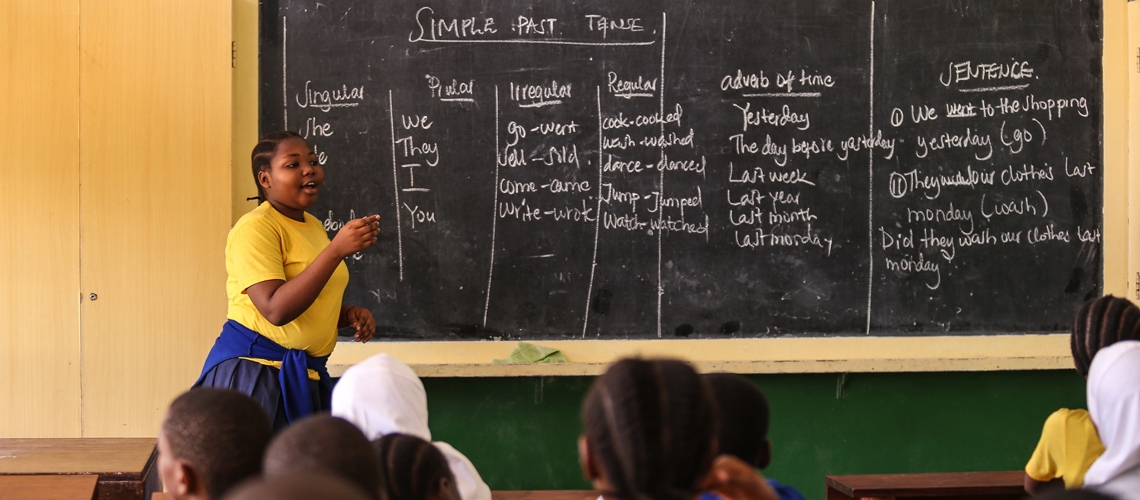 SIMPLE PAST TENSE.
Singular
She
Plular
We
They
I
You
Irregular
go - went
sell - sold.
come - came
write - wrote
Regular
cook - cooked
wash - washed
dance - danced
Jump - Jumped
Watch - watched
adverb of time
Yesterday
The day before yesterday
Last week
Last year
Last month
last monday
SENTENCE.
I We went to the shopping
yesterday (go)
II They our clothes last
monday (wash)
Did they wash our clothes last
monday